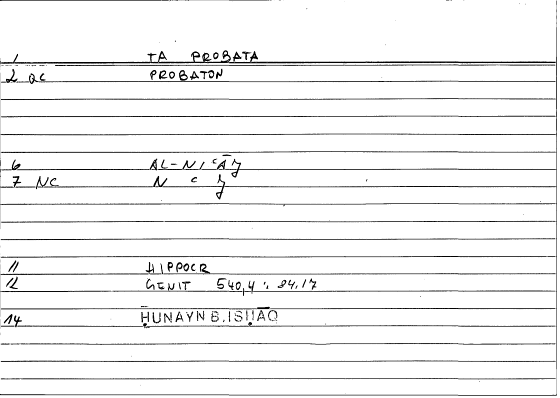 1 TA PROBATA
2 QC PROBATON
6 AL-NIʿĀǦ
7 NC N ʿ Ǧ
11 HIPPOCR
12 GENIT 540,4 : 84.17
14 ḤUNAYN B.ISḤĀQ